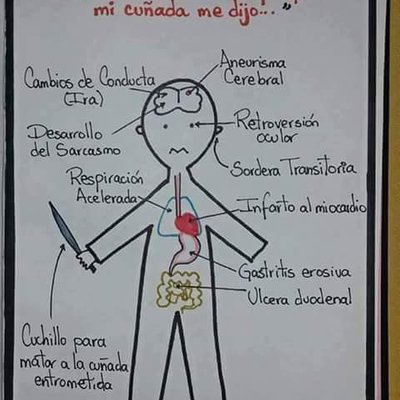 mi cuñada me dijo... "
Cambios de Conducta
(Ira)
Aneurisma
Cerebral
Desarrollo
del Sarcasmo
Retroversión
ocular
Sordera Transitoria
Respiración
Acelerada
Infarto al miocardio
Gastritis erosiva
Ulcera duodenal
Cuchillo para
matar a la cuñada
entrometida